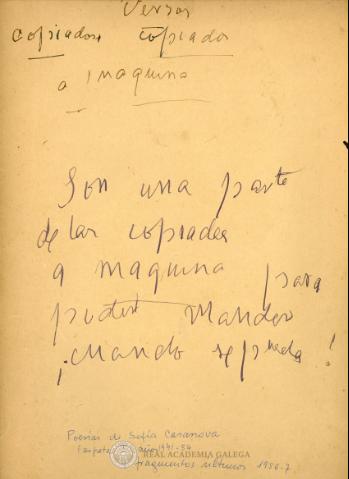 Versos
copiados copiados
a maquina
Son una parte
de las copiadas
a maquina para
poder mandar
¡cuando se pueda!
Poesías de Sofía Casanova
REAL ACADEMIA GALEGA
fragmentos últimos 1956-7